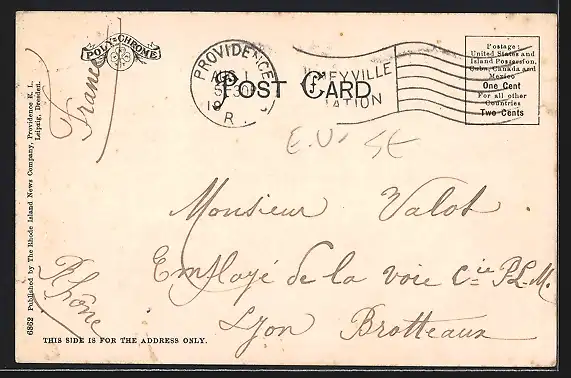 POLY-CHROME
France
PROVIDENCE
530
19
R.
POST CARD
STATION
Postage:
United States and
Island Possession,
Cuba, Canada and
Mexico
One Cent
For all other
Countries
Two Cents
E.U. St
Monsieur Valot
Employé de la voie Cie P.L.M.
Lyon Brotteaux
Rhône
THIS SIDE IS FOR THE ADDRESS ONLY.
6862 Published by The Rhode Island News Company, Providence R. I.,
Leipzig, Dresden.